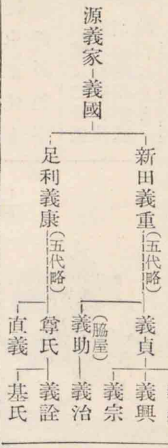 源義家
義國
新田義重
(五代略)
義貞
義興
義宗
(脇屋)
義助
義治
足利義康
(五代略)
尊氏
義詮
直義
基氏